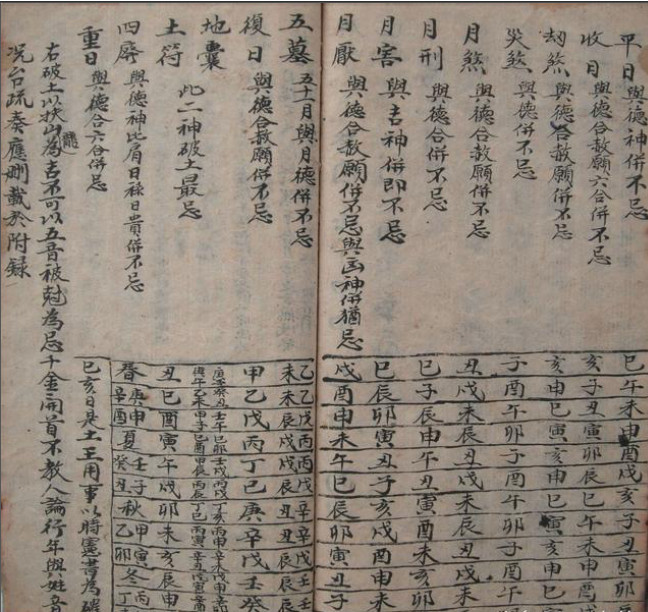 平日 與德神併不忌 巳午未申酉戌亥子丑寅卯
收日 與德合赦願六合併不忌 亥子丑寅卯辰巳午未申酉
劫煞 與德合赦願併不忌 亥申巳寅亥申巳寅亥申巳
災煞 與德併不忌 子酉午卯子酉午卯子酉午
月煞 與德合赦願併不忌 丑戌未辰丑戌未辰丑戌未
月刑 與德合併不忌 巳子辰申午丑寅酉未亥卯
月害 與吉神併即不忌 巳辰卯寅丑子亥戌酉申未
月厭 與德合赦願併不忌與凶神併猶忌 戌酉申未午巳辰卯寅丑子
五墓 五十一月與月德併不忌
復日 與德合赦願併不忌 甲乙戊丙丁己庚辛戊壬癸
地囊
土符 此二神破土最忌 丑巳酉寅午戌卯未亥辰申
四廢 與德神比肩日祿日貴併不忌 春庚申辛酉夏壬子癸丑秋甲寅乙卯冬丙
重日 與德合六合併忌 巳亥日是土王用事以時憲書為
右破土以扶山為吉不可以五音被尅為忌千金開首不教人論行年與姓音
況台疏奏應刪載於附錄